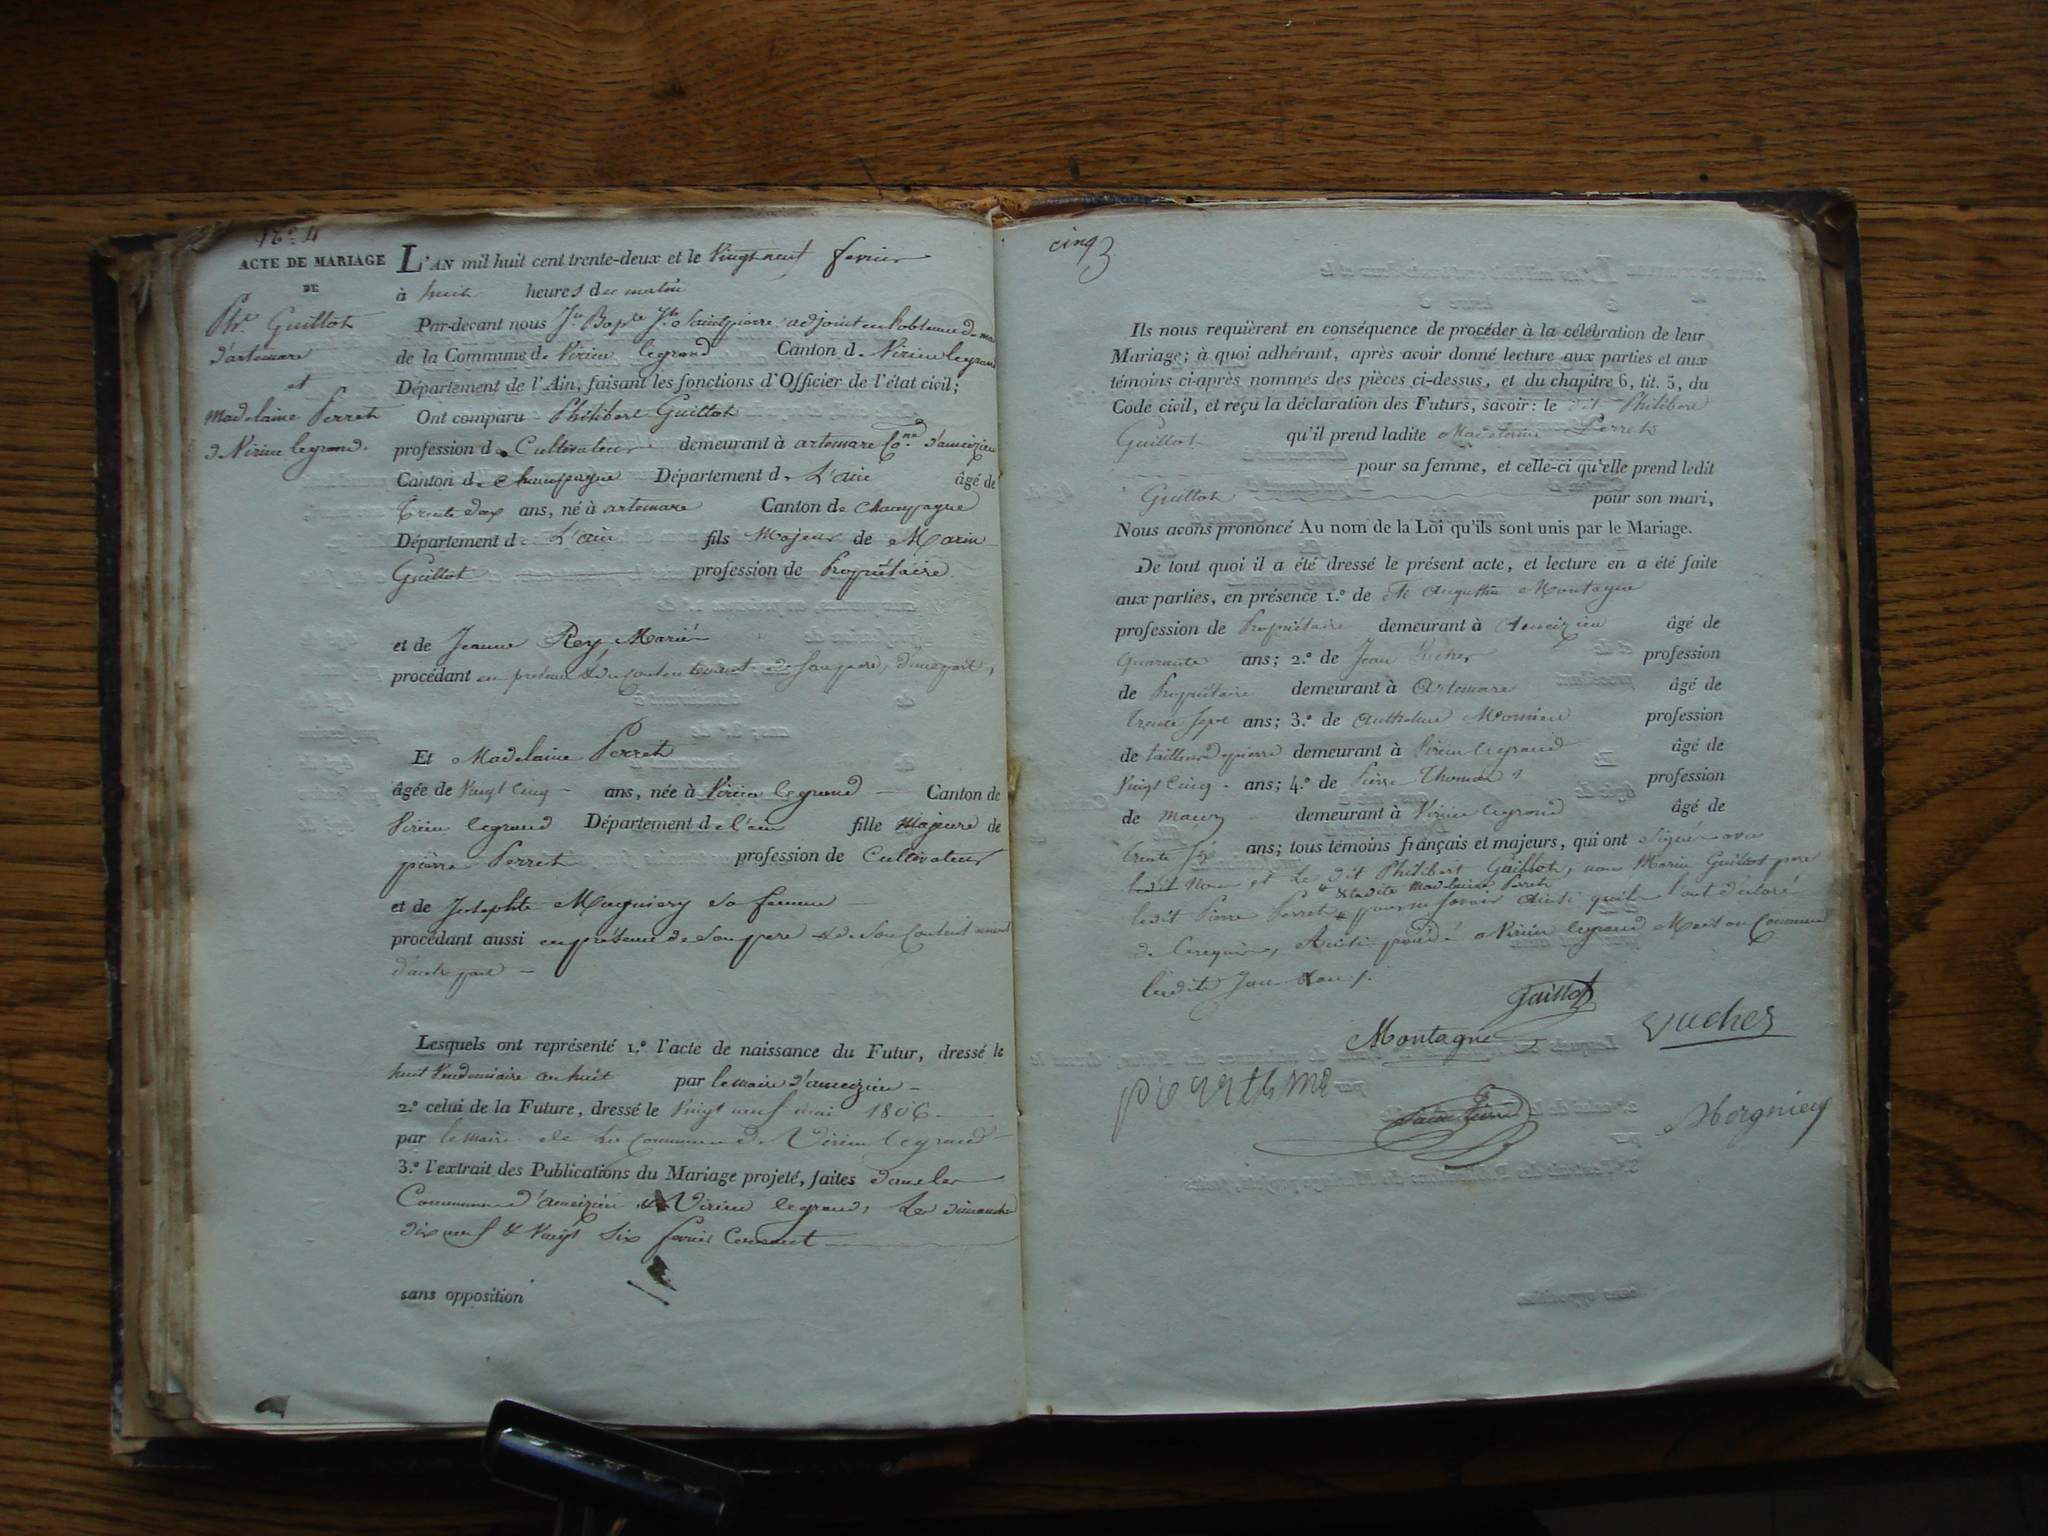 N.° 4
ACTE DE MARIAGE
DE
Ph.t Guillot
d'artemare
et
Madelaine Perret
d Virieu legrand.
L'AN mil huit cent trente-deux et le Vingt neuf fevrier
à huit heures du matin
Par-devant nous J.n Bap.te J.h Saintpierre adjoint en l'absence du
de la Commune de Virieu legrand Canton de Virieu legrand
Département de l'Ain, faisant les fonctions d'Officier de l'état civil;
Ont comparu Philibert Guillot
profession de Cultivateur demeurant à artemare Co.ne d'ameizieu
Canton de Champagne Département de L'ain âgé de
trente deux ans, né à artemare Canton de Champagne
Département de L'ain fils Majeur de Marin
Guillot profession de Propriétaire
et de Jeanne Rey Mariés
procédant en présence & du Contentement de son pere, d'une part,
Et Madelaine Perret
âgée de Vingt Cinq ans, née à Virieu legrand Canton de
Virieu legrand Département de l'ain fille Majeure de
pierre Perret profession de Cultivateur
et de Josephte sa femme
procédant aussi en présence de son pere & de son Contentement
d'autre part
Lesquels ont représenté 1.° l'acte de naissance du Futur, dressé le
huit Vendemiaire an huit par le maire d'ameizieu
2.° celui de la Future, dressé le Vingt neuf mai 1806
par le maire de La Commune de Virieu legrand
3.° l'extrait des Publications du Mariage projeté, faites dans les
Communes d'ameizieu & Virieu legrand, Les dimanches
dix neuf & Vingt Six fevrier Courant
sans opposition
cinq
Ils nous requièrent en conséquence de procéder à la célébration de leur
Mariage; à quoi adhérant, après avoir donné lecture aux parties et aux
témoins ci-après nommés des pièces ci-dessus, et du chapitre 6, tit. 5, du
Code civil, et reçu la déclaration des Futurs, savoir: le dit Philibert
Guillot qu'il prend ladite Madelaine Perret
pour sa femme, et celle-ci qu'elle prend ledit
Guillot pour son mari,
Nous avons prononcé Au nom de la Loi qu'ils sont unis par le Mariage.
De tout quoi il a été dressé le présent acte, et lecture en a été faite
aux parties, en présence 1.° de M Augustin Montagne
profession de Propriétaire demeurant à Ameizieu âgé de
Quarante ans; 2.° de Jean Vucher profession
de Propriétaire demeurant à Artemare âgé de
trente Sept ans; 3.° de Anthelme profession
de tailleur de pierre demeurant à Virieu legrand âgé de
Vingt Cinq ans; 4.° de Pierre Thomé profession
de demeurant à Virieu legrand âgé de
trente Six ans; tous témoins français et majeurs, qui ont Signé avec
Nous et Le dit Philibert Guillot, non Marin Guillot pere
& ladite Madelaine Perret
ledit Pierre Perret pour ne savoir ainsi qu'ils l'ont déclaré
de Ce requis, Ainsi procédé à Virieu legrand Maison Commune
lesdits Jour & an /.
Guillot
Montagne
Vucher
Saintpierre
Morgnieux